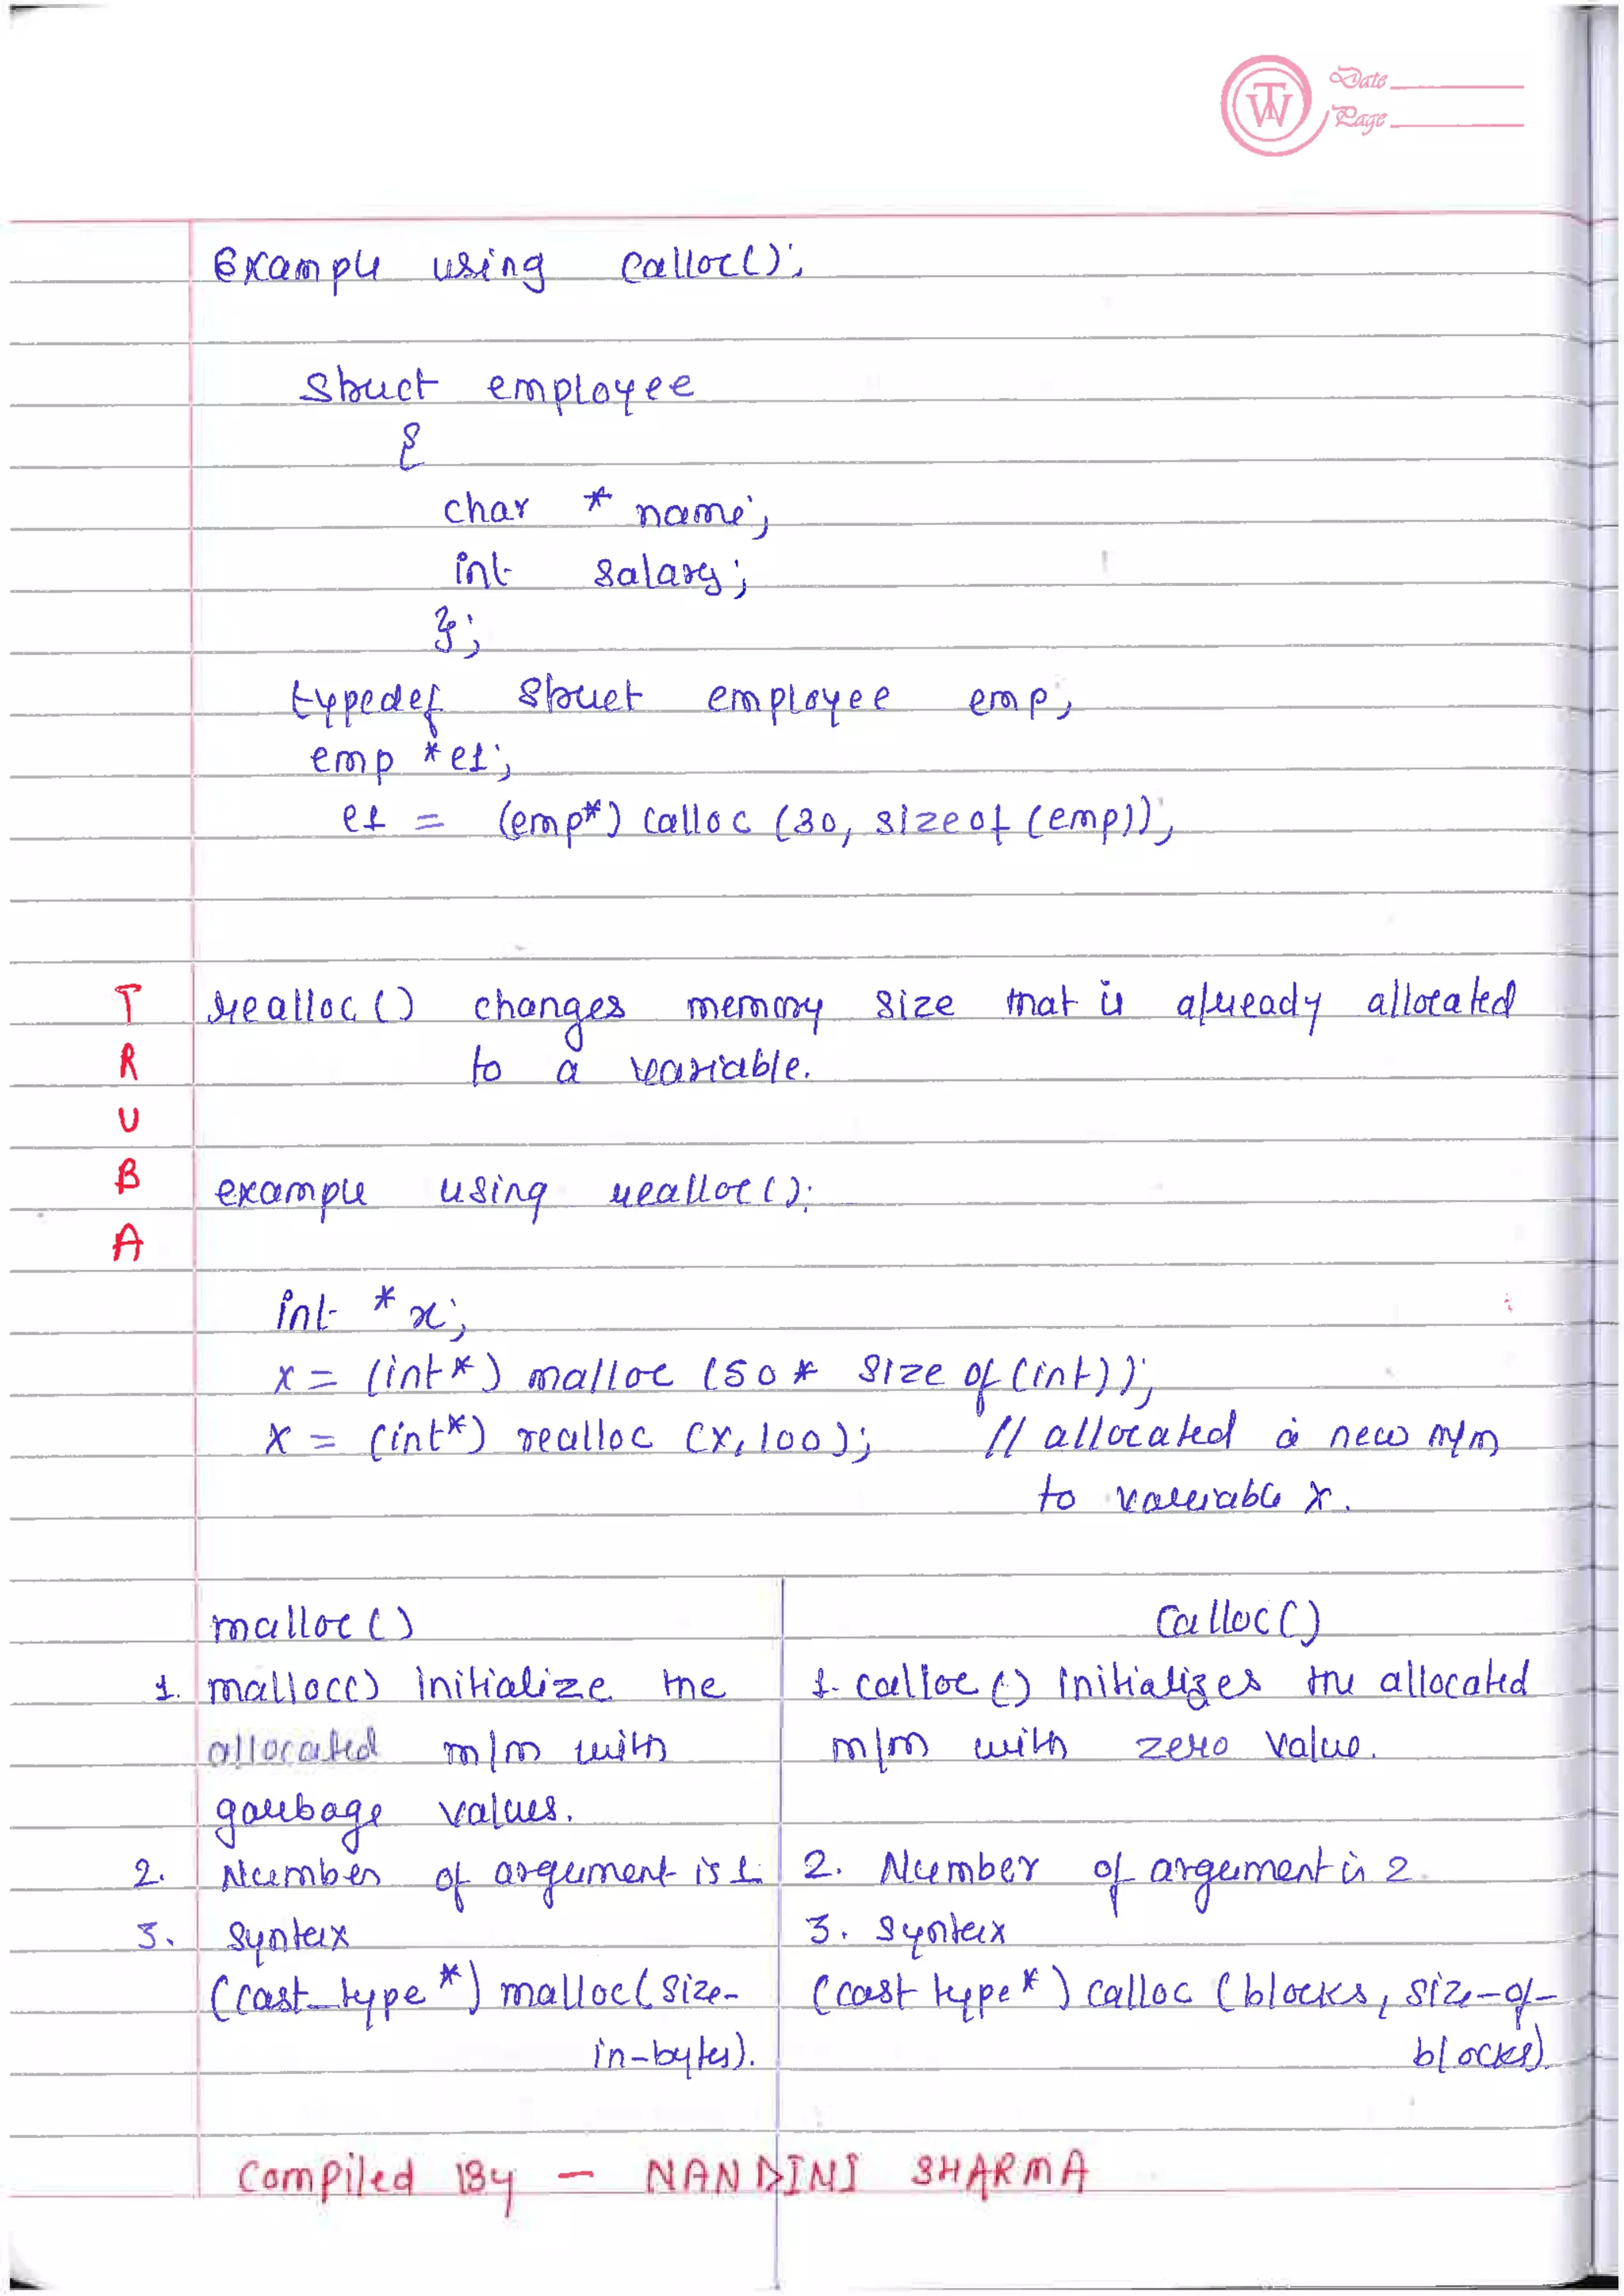 Date
Page
TW
Example using calloc();
Struct employee
{
char * name;
int salary;
};
typedef struct employee emp;
emp *e1;
e1 = (emp*) calloc (30, sizeof (emp));
T
R
U
B
A
realloc () changes memory size that is already allocated
to a variable.
example using realloc ();
int * x;
x = (int*) malloc (50 * size of (int));
x = (int*) realloc (x, 100); // allocated a new m/m
to variable x.
malloc ()
1. malloc() initialize the
allocated m/m with
garbage values.
2. Number of argument is 1.
3. Syntax
(cast_type *) malloc (Size-
in-bytes).
Calloc ()
1. calloc () initializes the allocated
m/m with zero value.
2. Number of argument is 2.
3. Syntax
(cast type *) calloc (blocks, size-of-
blocks).
Compiled By - NANDINI SHARMA